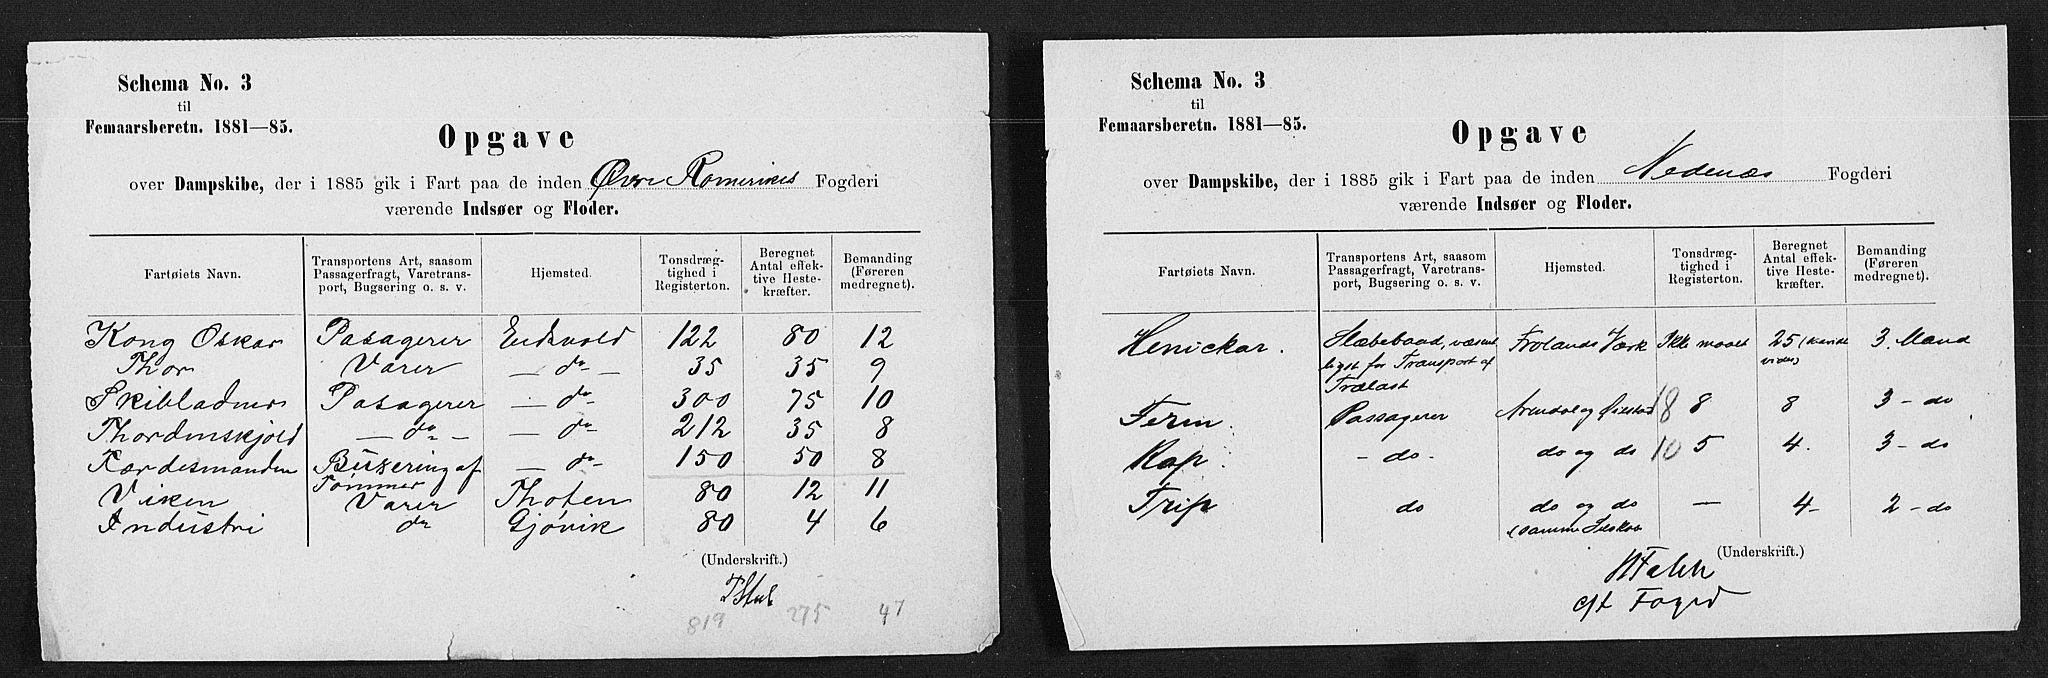 Schema No. 3
til
Femaarsberetn. 1881—85.
Opgave
over Dampskibe, der i 1885 gik i Fart paa de inden Øvre Romerikes Fogderi
værende Indsøer og Floder.
Fartøiets Navn. Transportens Art, saasom Passagerfragt, Varetrans-port, Bugsering o. s. v. Hjemsted. Tonsdræg-tighed i Registerton. Beregnet Antal effek-tive Heste-kræfter. Bemanding (Føreren medregnet).
Kong Oskar Passagerer Eidsvold 122 80 12
Thor Varer — do — 35 35 9
Skibladner Passagerer — do 300 75 10
Thordenskjold — do — — do 212 35 8
Færdesmanden Buxering af Tømmer — do 150 50 8
Viken Varer Thoten 80 12 11
Industri do Gjøvik 80 4 6
(Underskrift.)
819 275 47
Schema No. 3
til
Femaarsberetn. 1881—85.
Opgave
over Dampskibe, der i 1885 gik i Fart paa de inden Nedenæs Fogderi
værende Indsøer og Floder.
Fartøiets Navn. Transportens Art, saasom Passagerfragt, Varetrans-port, Bugsering o. s. v. Hjemsted. Tonsdræg-tighed i Registerton. Beregnet Antal effek-tive Heste-kræfter. Bemanding (Føreren medregnet).
Henickar. Slæbebaad, væsent ligst for Transport af Trælast Frolands Værk Ikke maalt 25 3. Mand
Ferm. Passagerer Arendal og Øiestad 18 8 8 3 – do
Rap. – do. do og do 10 5 4. 3 – do
Trip do do og do — 4 2 – do
(samme
(Underskrift.)
NFalck
cst Foged